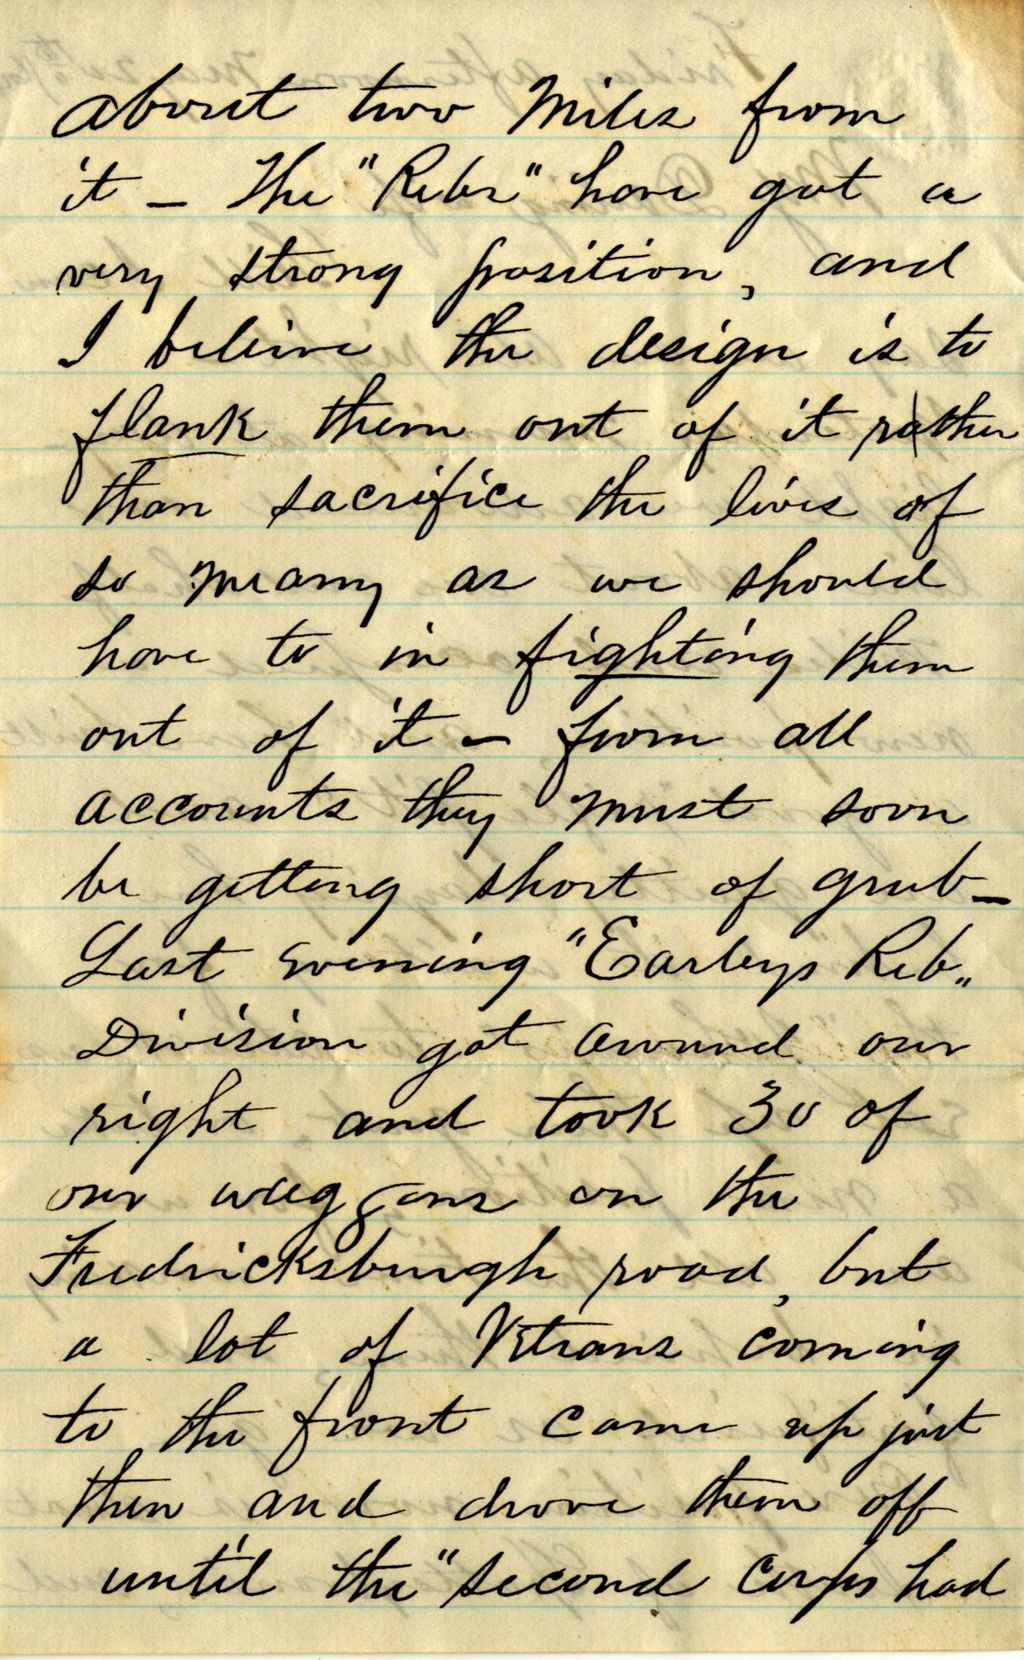 about two Miles from
it – The "Rebs" have got a
very strong position, and
I believe the design is to
flank them out of it rather
than sacrifice the lives of
so many as we should
have to in fighting them
out of it – from all
accounts they must soon
be getting short of grub –
Last evening "Earleys Reb"
Division got around our
right and took 30 of
our waggons on the
Fredricksburgh road, but
a lot of Vetrans coming
to the front came up just
then and drove them off
until the "second Corps had